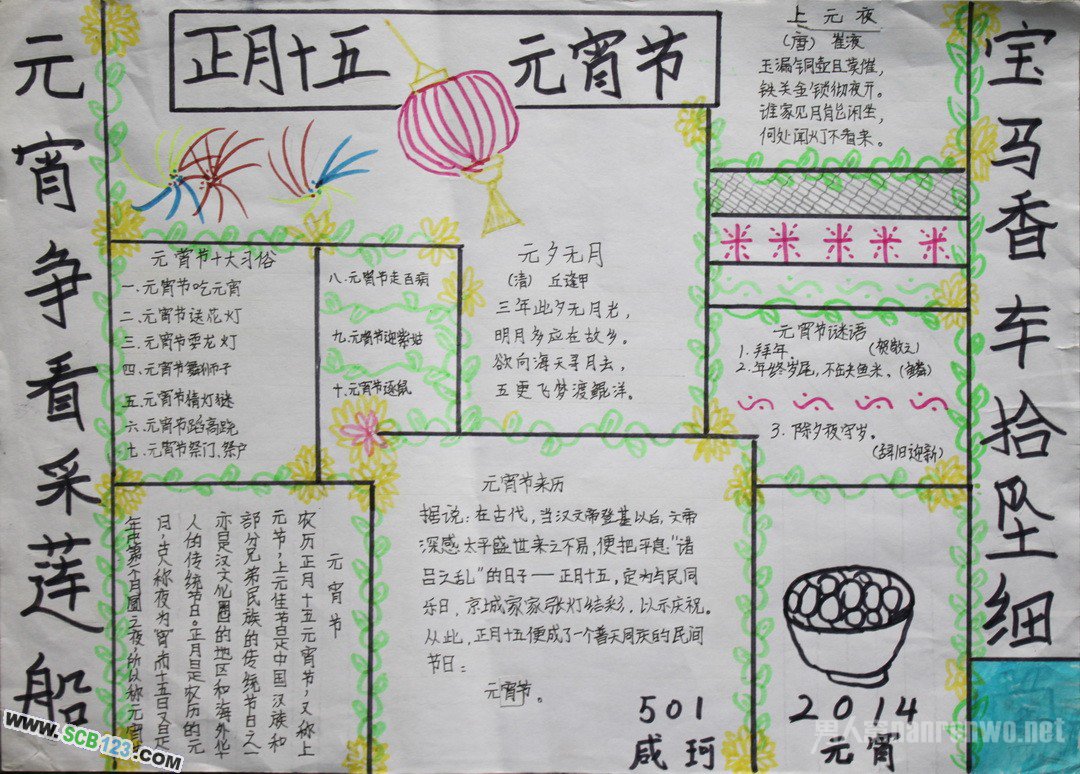 正月十五 元宵节
元宵争看采莲船
宝马香车拾坠细
上元夜
(唐) 崔液
玉漏铜壶且莫催,
铁关金锁彻夜开。
谁家见月能闲坐,
何处闻灯不看来。
元宵节十大习俗
一.元宵节吃元宵
二.元宵节送花灯
三.元宵节耍龙灯
四.元宵节舞狮子
五.元宵节猜灯谜
六.元宵节踩高跷
七.元宵节祭门、祭户
八.元宵节走百病
九.元宵节迎紫姑
十.元宵节逐鼠
元夕无月
(清) 丘逢甲
三年此夕无月光,
明月多应在故乡。
欲向海天寻月去,
五更飞梦渡鲲洋。
元宵节谜语
1.拜年。 (贺敬之)
2.年终岁尾,不缺鱼米。(鳞)
3.除夕夜守岁。
(辞旧迎新)
元宵节
农历正月十五元宵节,又称上
元节,上元佳节是中国汉族和
部分兄弟民族的传统节日之一
亦是汉文化圈的地区和海外华
人的传统节日。正月是农历的元
月,古人称夜为宵,而十五日又是
年中第一个月圆之夜,所以称元宵
元宵节来历
据说:在古代,当汉文帝登基以后,文帝
深感太平盛世来之不易,便把平息“诸
吕之乱”的日子——正月十五,定为与民同
乐日,京城家家张灯结彩,以示庆祝。
从此,正月十五便成了一个普天同庆的民间
节日:
元宵节。
501
咸珂
2014
元宵
www.SCB123.com
nanrenwo.net